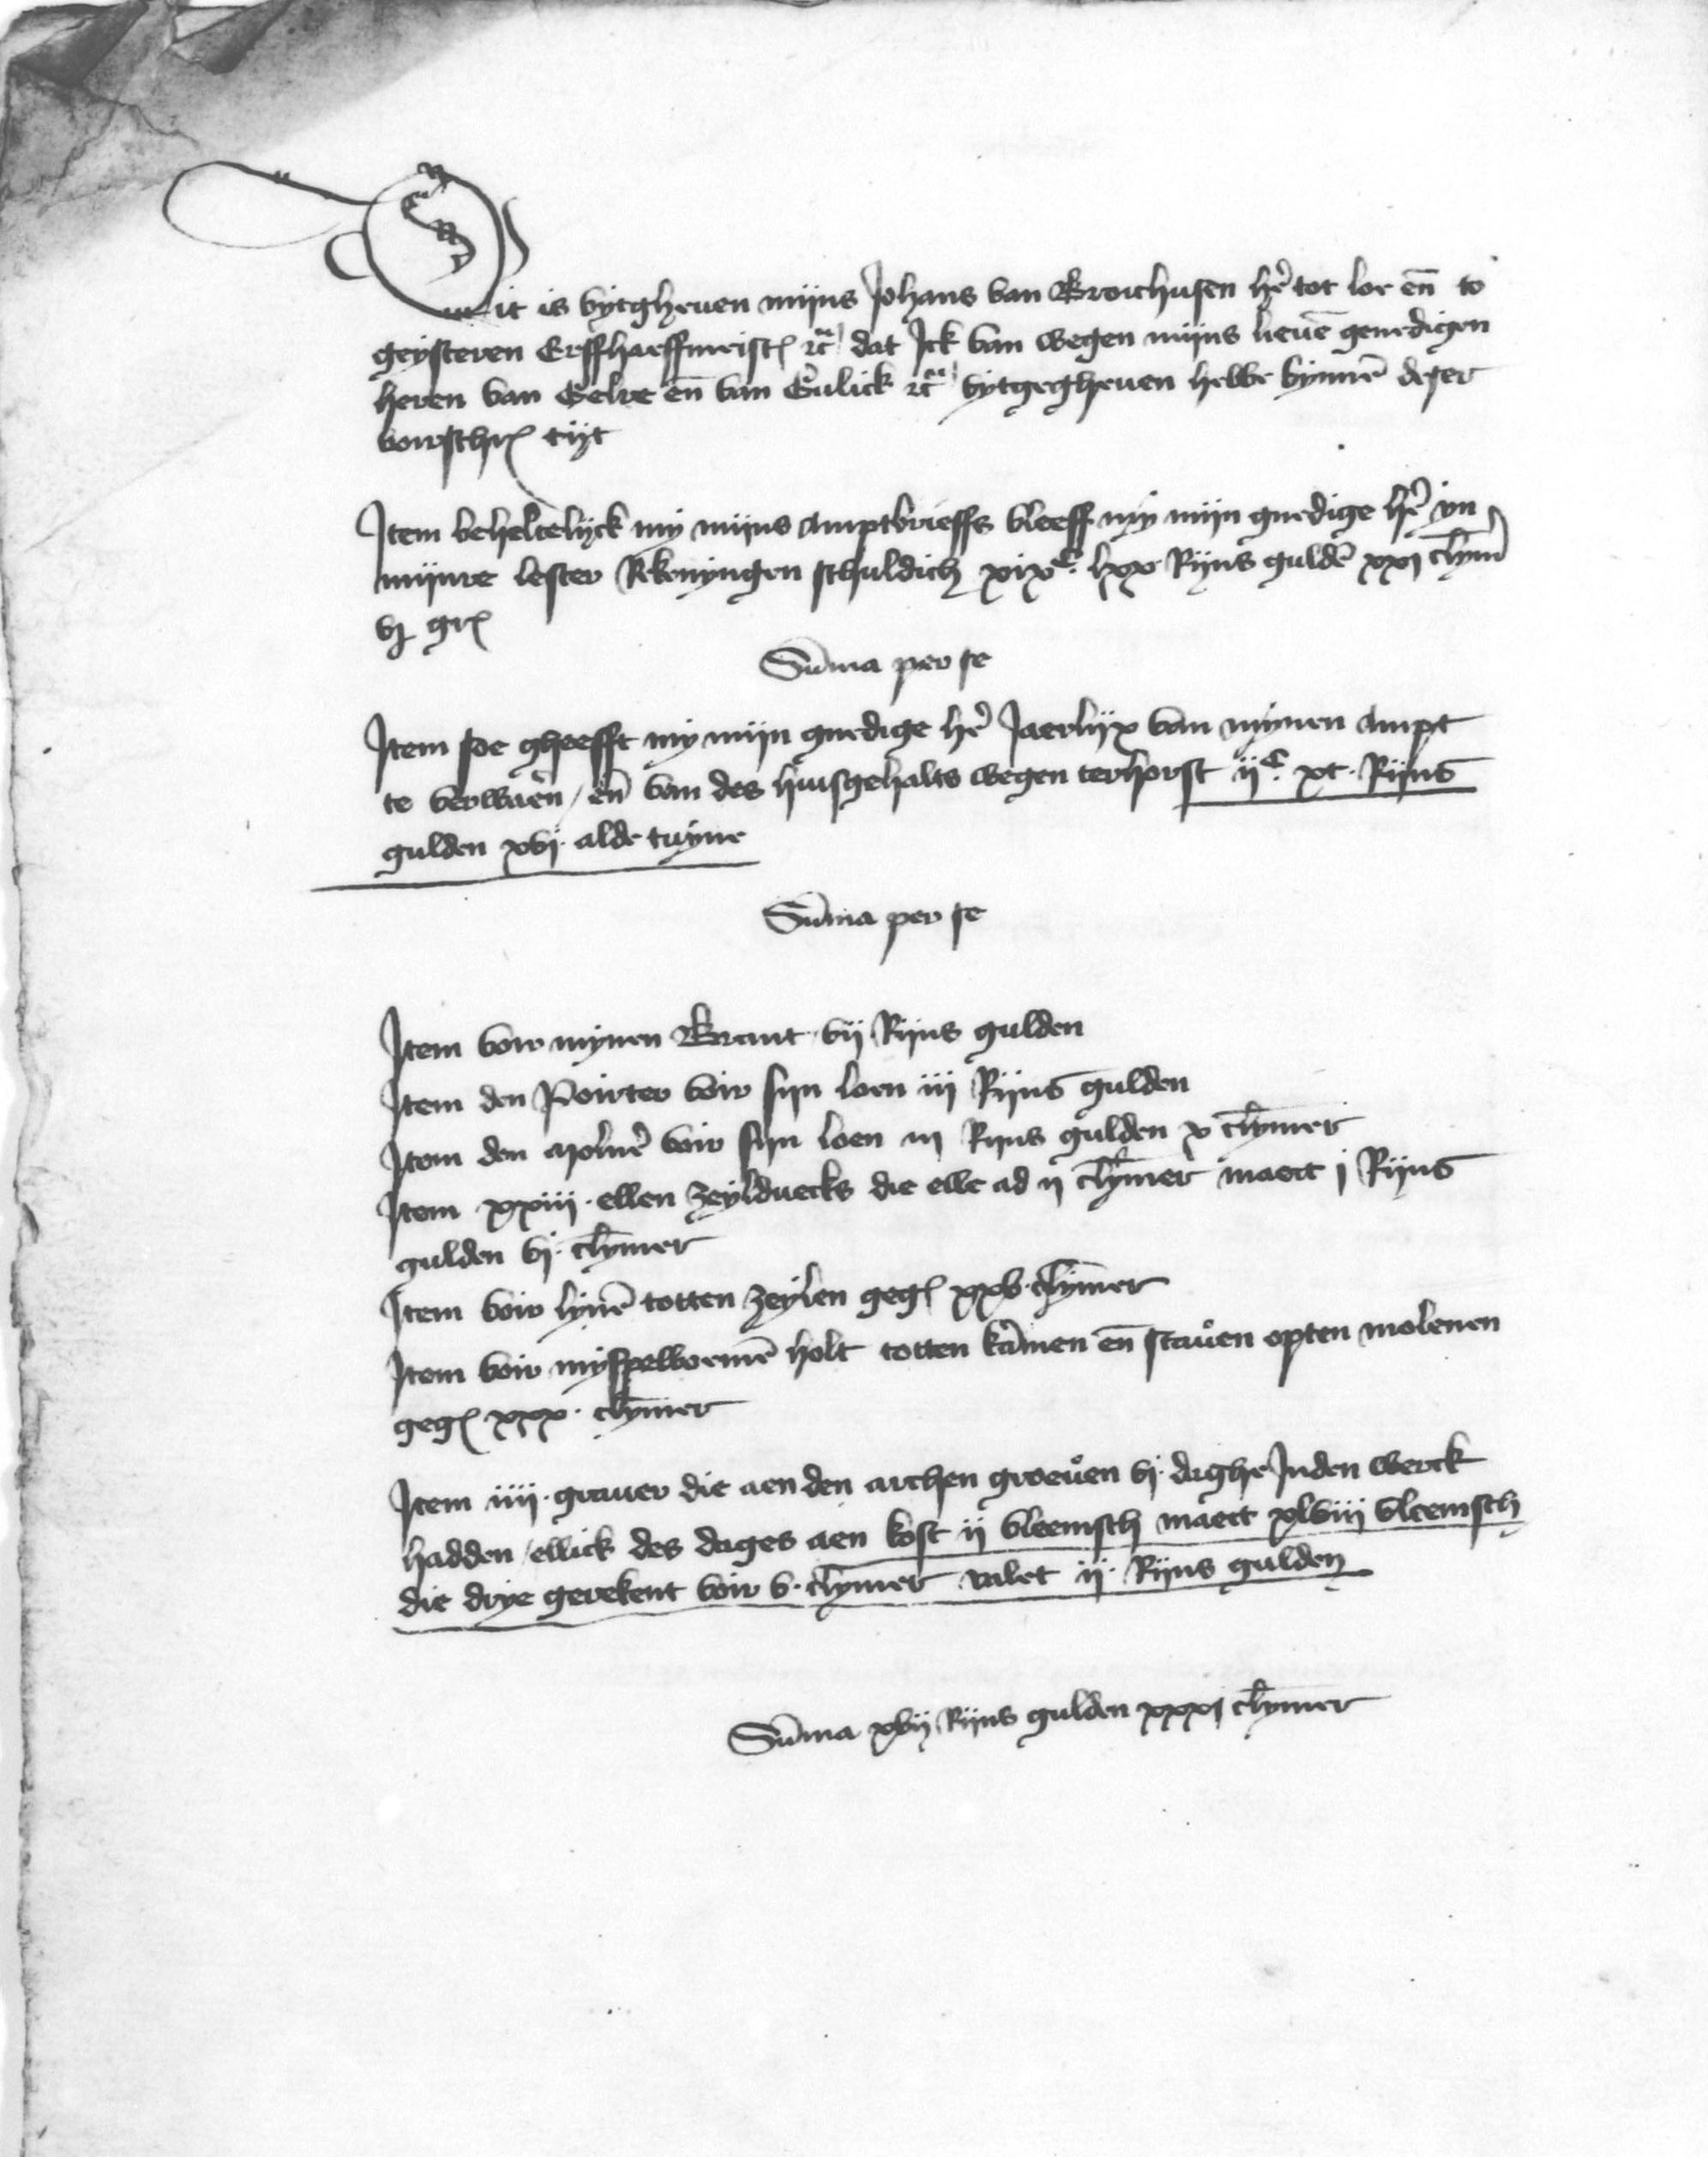 Dit is vytgheuen mijns Johans van Broichusen hr̃ tot loe en̄ to
geysteren Erffhaeffmeist(er) (et)c̃ dat Ick van wegen mijns lieuē genedigen
heren van Gelre en̄ van Gulick (et)c̃ vytgegheuen hebbe bynnē deser
voirschr(even) tijt
Item beheltelijck mij mijns amptbrieffs bleeff mij mijn gnedige hr̃ yn
mijnre lester Rekenyngen schuldich xixᶜ· lxx Rijns guldē xxj clym̄
vj gr(oten)
Sūma per se
Item soe gheefft mij mijn gnedige hr̃ Jaerlijx van mijnen Ampt
te verwaēn / en̄ van des huisgehalts wegen terhorst ijᶜ· xc· Rijns
gulden xvj· alde tuyne
Sūma per se
Item voir mynen Brant vij Rijns gulden
Item den Poirter voir sijn loen iij Rijns gulden
Item den molnē voir sijn loen iij Rijns gulden x clym̄er
Item xxiij· ellen zeylduecks die elle ad ij clym̄er maect j Rijns
gulden vj· clym̄er
Item voir lynē totten zeylen geg(even) xxv· clym̄er
Item voir myspelboemē holt totten kāmen en̄ stauen opten molenen
geg(even) xxx· clym̄er
Item iiij· grauer die aen den archen groeuen vj· daghe Inden werck
hadden / ellick des dages aen kost ij vleemsch maect xlviij vleemsch
die drye gerekent voir v· clymer valet ij· Rijns gulden
Sūma xvij Rijns gulden xxxj clym̄er